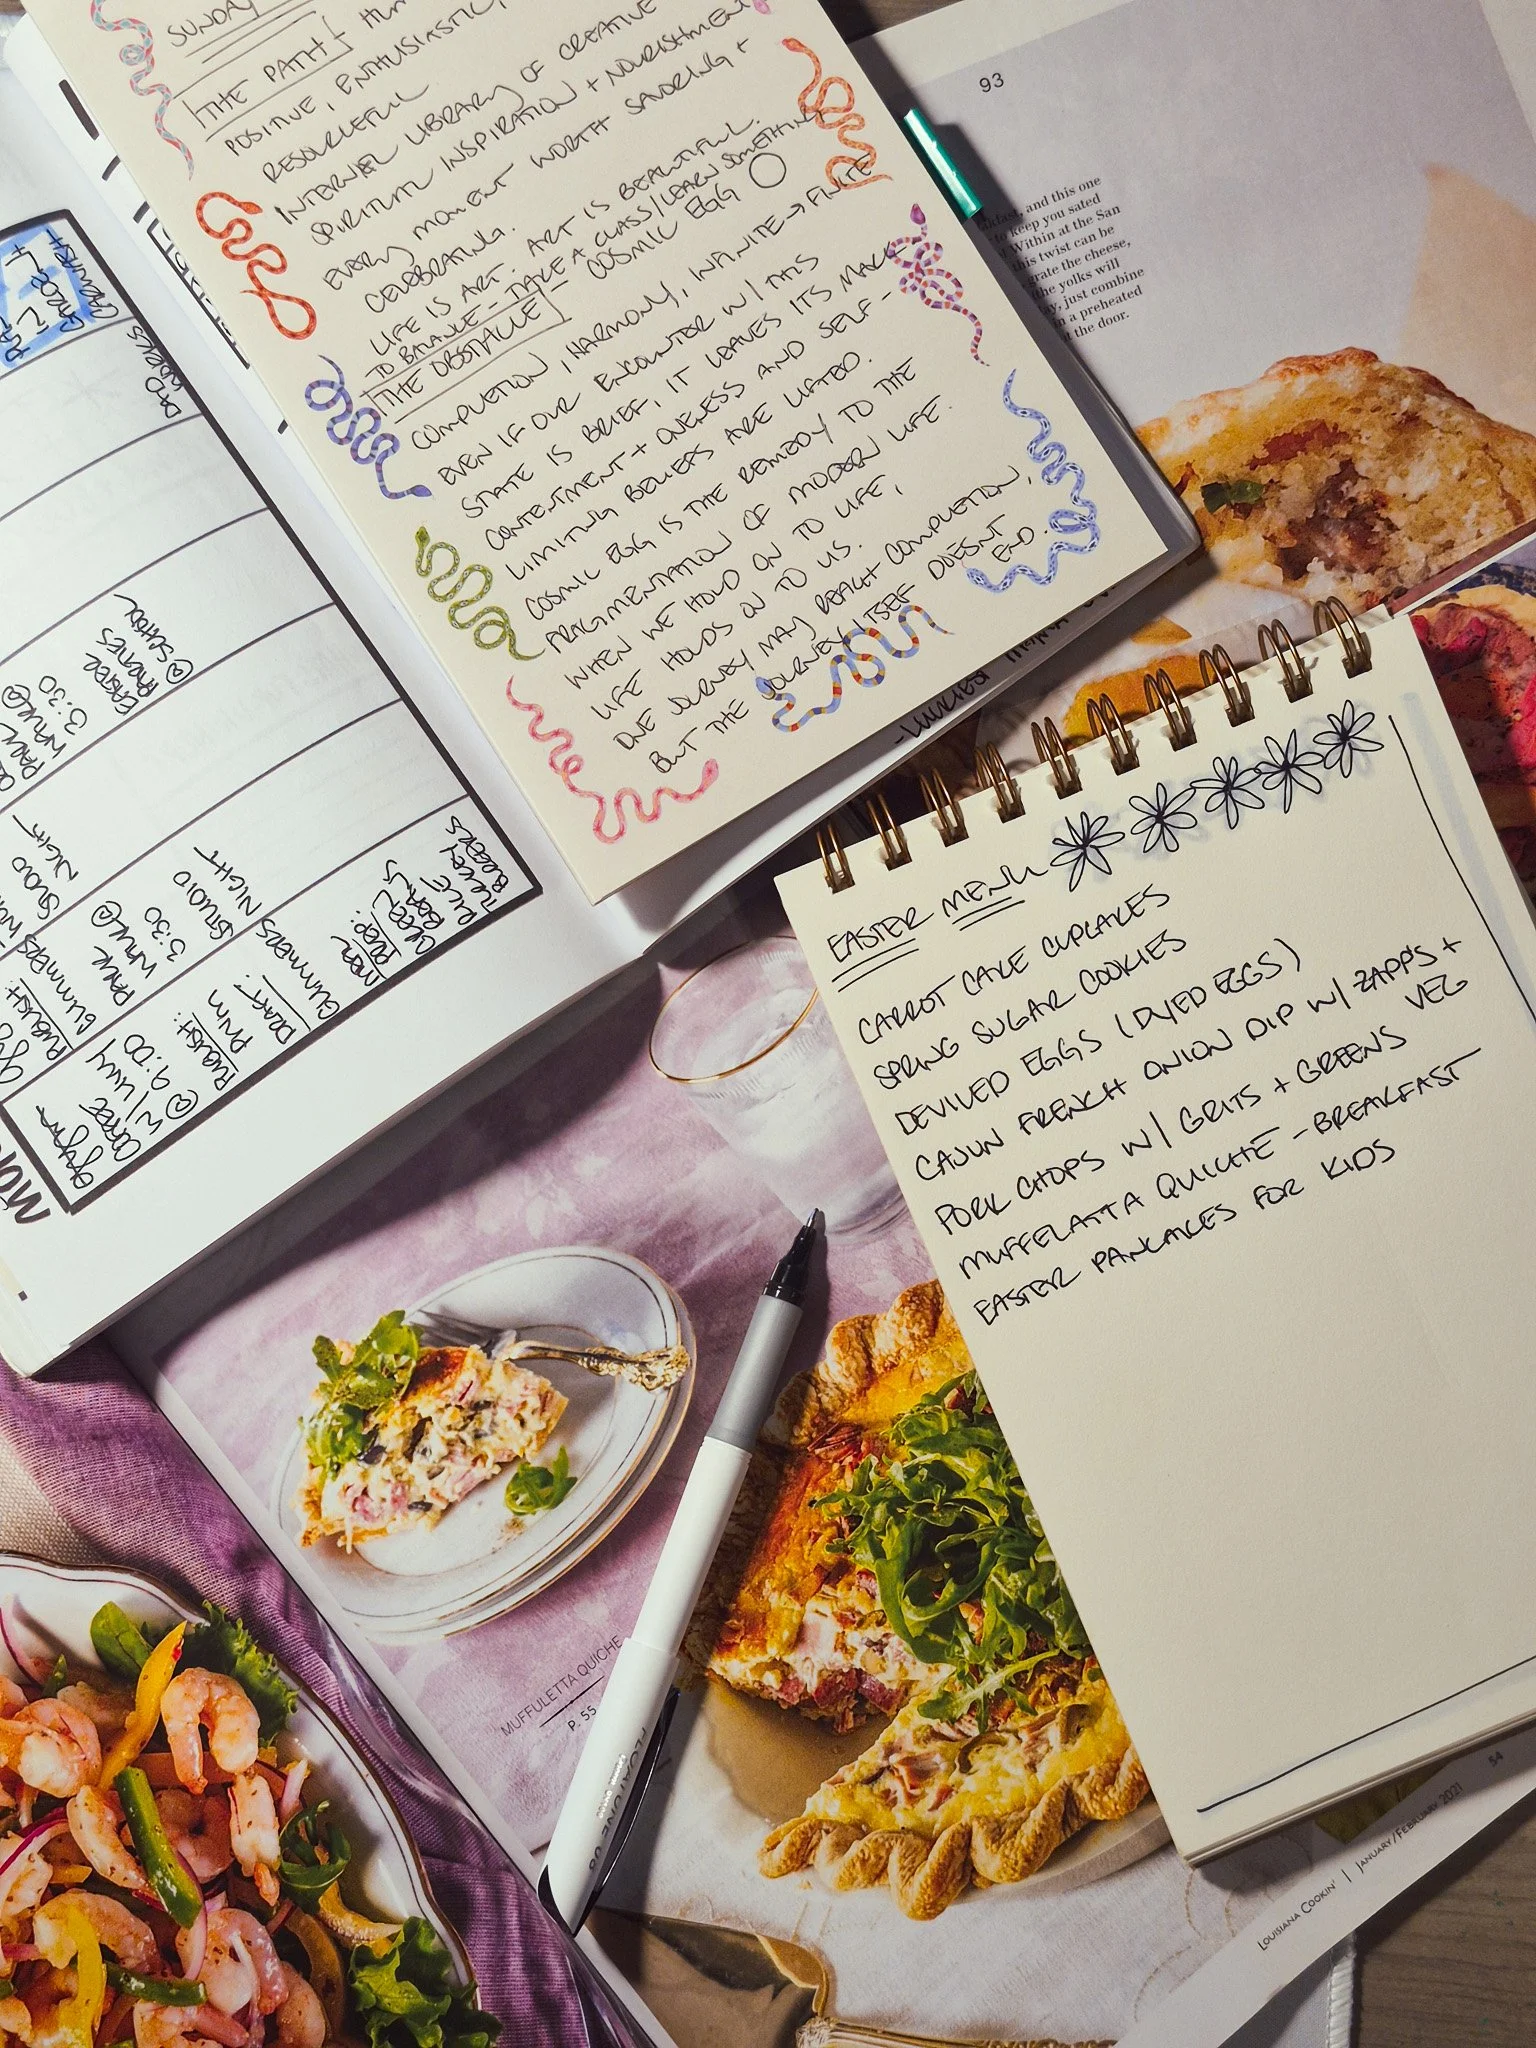 SUNDAY
THE PATH
POSITIVE, ENTHUSIASTIC,
RESOURCEFUL.
INTERNAL LIBRARY OF CREATIVE
SPIRITUAL INSPIRATION + NOURISHMENT
EVERY MOMENT WORTH SAVORING +
CELEBRATING.
LIFE IS ART. ART IS BEAUTIFUL.
TO BALANCE - TAKE A CLASS/LEARN SOMETHING
THE OBSTACLE - COSMIC EGG
COMPLETION, HARMONY, INFINITE → FINITE
EVEN IF OUR ENCOUNTER W/ THIS
STATE IS BRIEF, IT LEAVES ITS MARK
CONTENTMENT + ONENESS AND SELF-
LIMITING BELIEFS ARE LIFTED.
COSMIC EGG IS THE REMEDY TO THE
FRAGMENTATION OF MODERN LIFE.
WHEN WE HOLD ON TO LIFE,
LIFE HOLDS ON TO US.
ONE JOURNEY MAY REACH COMPLETION,
BUT THE JOURNEY ITSELF DOESNT
END.
93
and this one
to keep you sated
Within at the San
this twist can be
grate the cheese,
the yolks will
just combine
in a preheated
the door.
DAD WORKS
EASTER
PARTIES
@ SCHOOL
PARK
WALK @
3:30
STUDIO
NIGHT
PUBLISH:
GLIMMERS
PARK
WALK @
3:30
STUDIO
NIGHT
COFFEE
W/ LILLY
@ 9:00
PUBLISH:
DRAFT:
GLIMMERS
MEAL
PREP:
GREEN
BEANS
RICE
TURKEY
BURGERS
EASTER MENU
CARROT CAKE CUPCAKES
SPRING SUGAR COOKIES
DEVILED EGGS (DYED EGGS)
CAJUN FRENCH ONION DIP W/ ZAPP'S +
VEG
PORK CHOPS W/ GRITS + GREENS
MUFFELATTA QUICHE - BREAKFAST
EASTER PANCAKES FOR KIDS
MUFFULETTA QUICHE
P. 55
LOUISIANA COOKIN' | JANUARY/FEBRUARY 2021 54